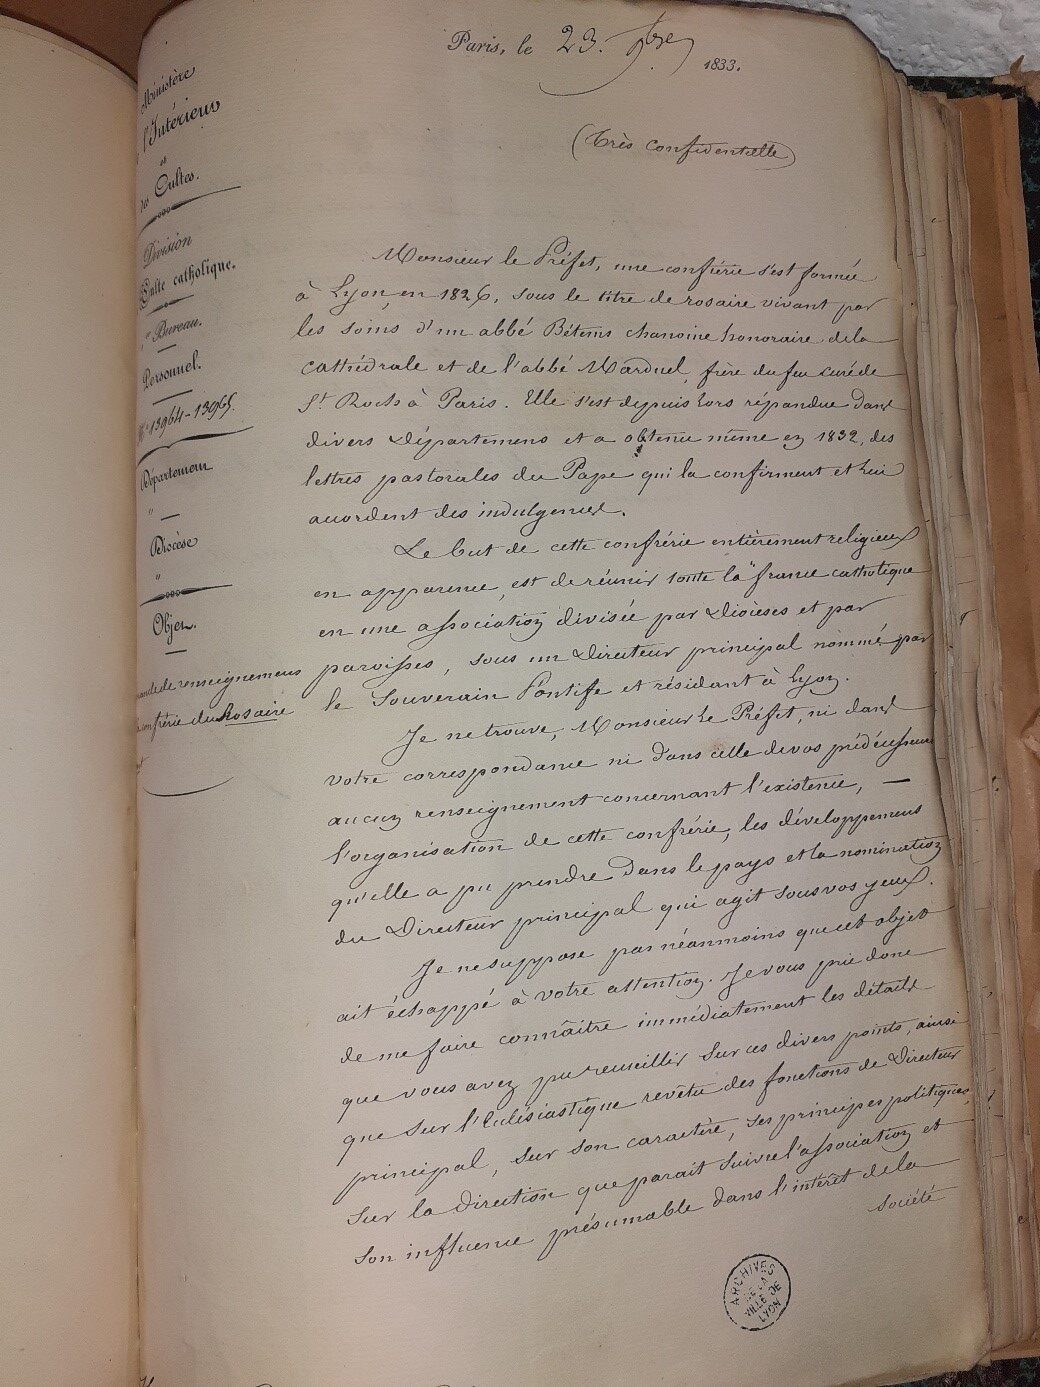 Paris, le 23. 9bre 1833.
(Très confidentielle)
Ministère
l'Intérieur
et
des Cultes.
Division
Culte catholique.
Bureau.
Personnel.
Nos 13964-13965.
Département
"
Diocèse
"
Objet.
demande de renseignemens
confrérie du Rosaire
Monsieur le Préfet, une confrérie s'est formée
à Lyon, en 1826, sous le titre de rosaire vivant par
les soins d'un abbé Bétems chanoine honoraire de la
cathédrale et de l'abbé Marduel, frère du feu curé de
St Roch à Paris. Elle s'est depuis lors répandue dans
divers départemens et a obtenu même en 1832, des
lettres pastorales du Pape qui la confirment et lui
accordent des indulgences.
Le but de cette confrérie entièrement religieux
en apparence, est de réunir toute la france catholique
en une association divisée par Diocèses et par
paroisses, sous un Directeur principal nommé par
le Souverain Pontife et résidant à Lyon.
Je ne trouve, Monsieur le Préfet, ni dans
votre correspondance ni dans celle de vos prédécesseurs
aucun renseignement concernant l'existence, —
l'organisation de cette confrérie, les développemens
qu'elle a pu prendre dans le pays et la nomination
du Directeur principal qui agit sous vos yeux.
Je ne suppose pas néanmoins que cet objet
ait échappé à votre attention. Je vous prie donc
de me faire connaître immédiatement les détails
que vous avez pu recueillir sur ces divers points, ainsi
que sur l'Eclésiastique revêtu des fonctions de Directeur
principal, sur son caractère, ses principes politiques,
sur la direction que parait suivre l'association et
son influence présumable dans l'intérêt de la
société
ARCHIVES
DE LA
VILLE DE
LYON